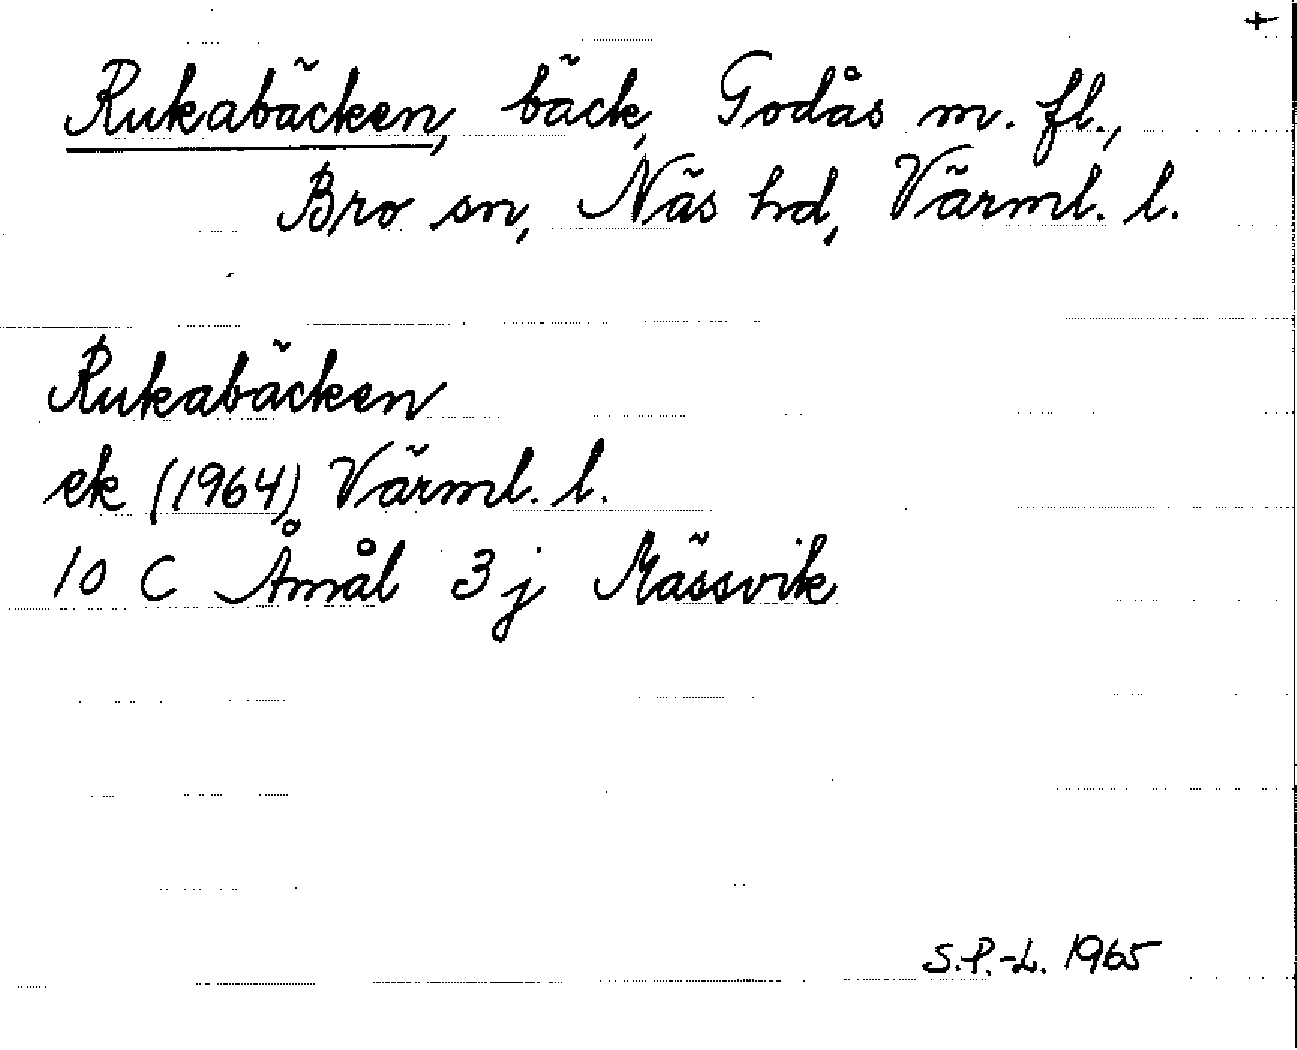 +
Rukabäcken, bäck, Godås m. fl.,
Bro sn, Näs hd, Värml. l.
Rukabäcken
ek (1964) Värml. l.
10 C Åmål 3 j Mässvik
S.P.-L. 1965